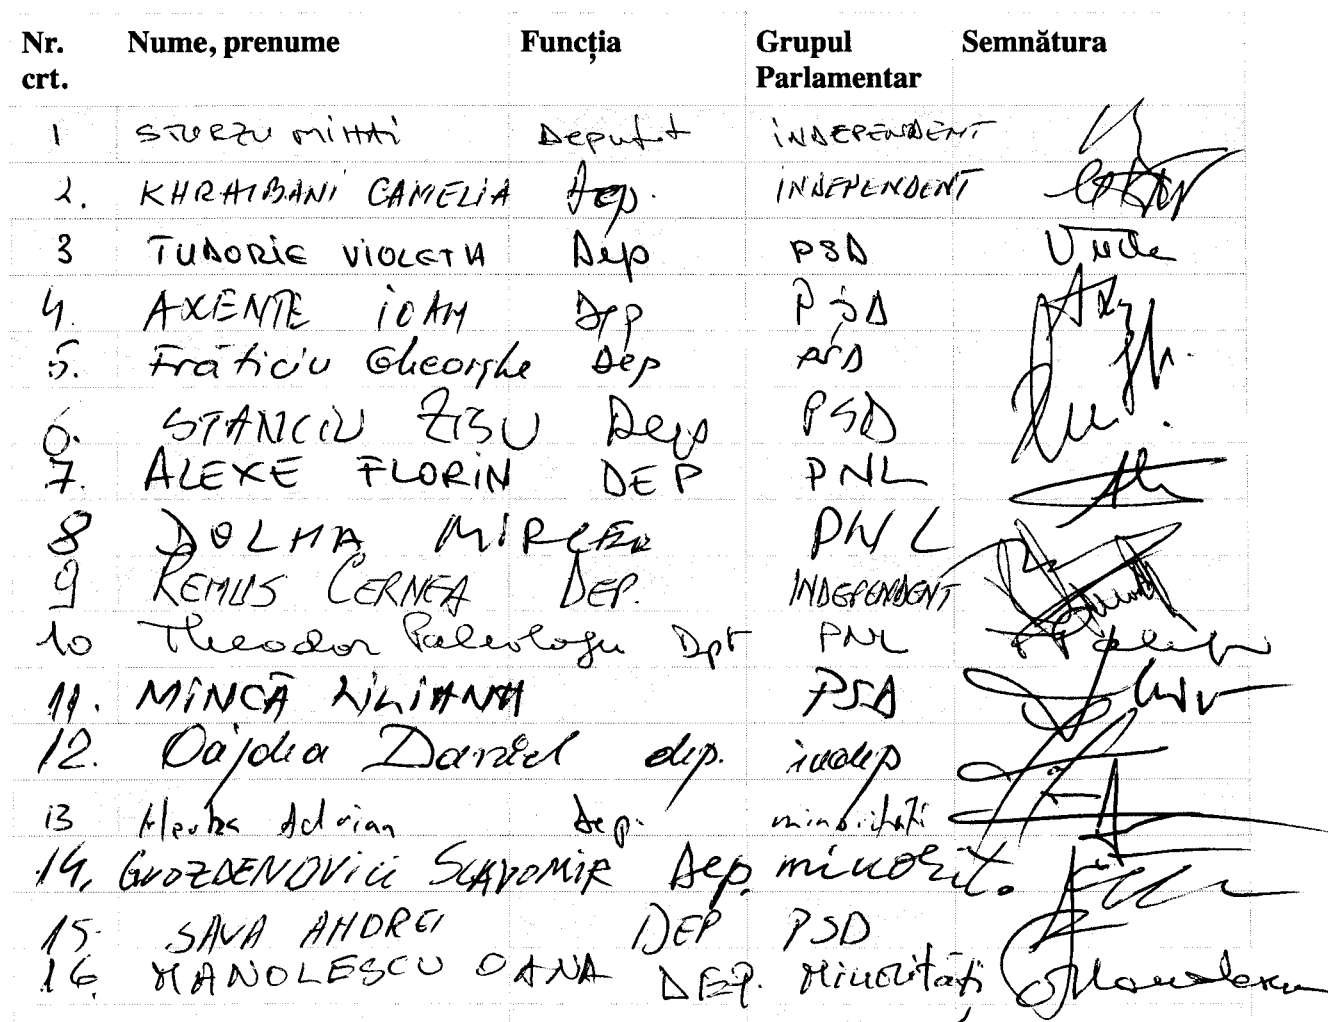 Nr. crt. Nume, prenume Funcția Grupul Parlamentar Semnătura
1 STURZU MIHAI Deputat INDEPENDENT
2. KHRAIBANI CAMELIA Dep. INDEPENDENT
3 TUDORIE VIOLETA Dep PSD
4. AXENTE IOAN Dep PSD
5. Frăticiu Gheorghe Dep PSD
6. STANCIU ZISU Dep PSD
7. ALEXE FLORIN DEP PNL
8 DOLHA MIRCEA PNL
9 REMUS CERNEA DEP. INDEPENDENT
10 Theodor Paleologu Dpt PNL
11. MINCĂ LILIANA PSD
12. Oajdea Daniel dep. indep
13 Adrian Dep. minorități
14. GVOZDENOVICI SLAVOMIR Dep. minorit.
15. SAVA ANDREI DEP PSD
16. MANOLESCU OANA DEP. Minorități Manolescu